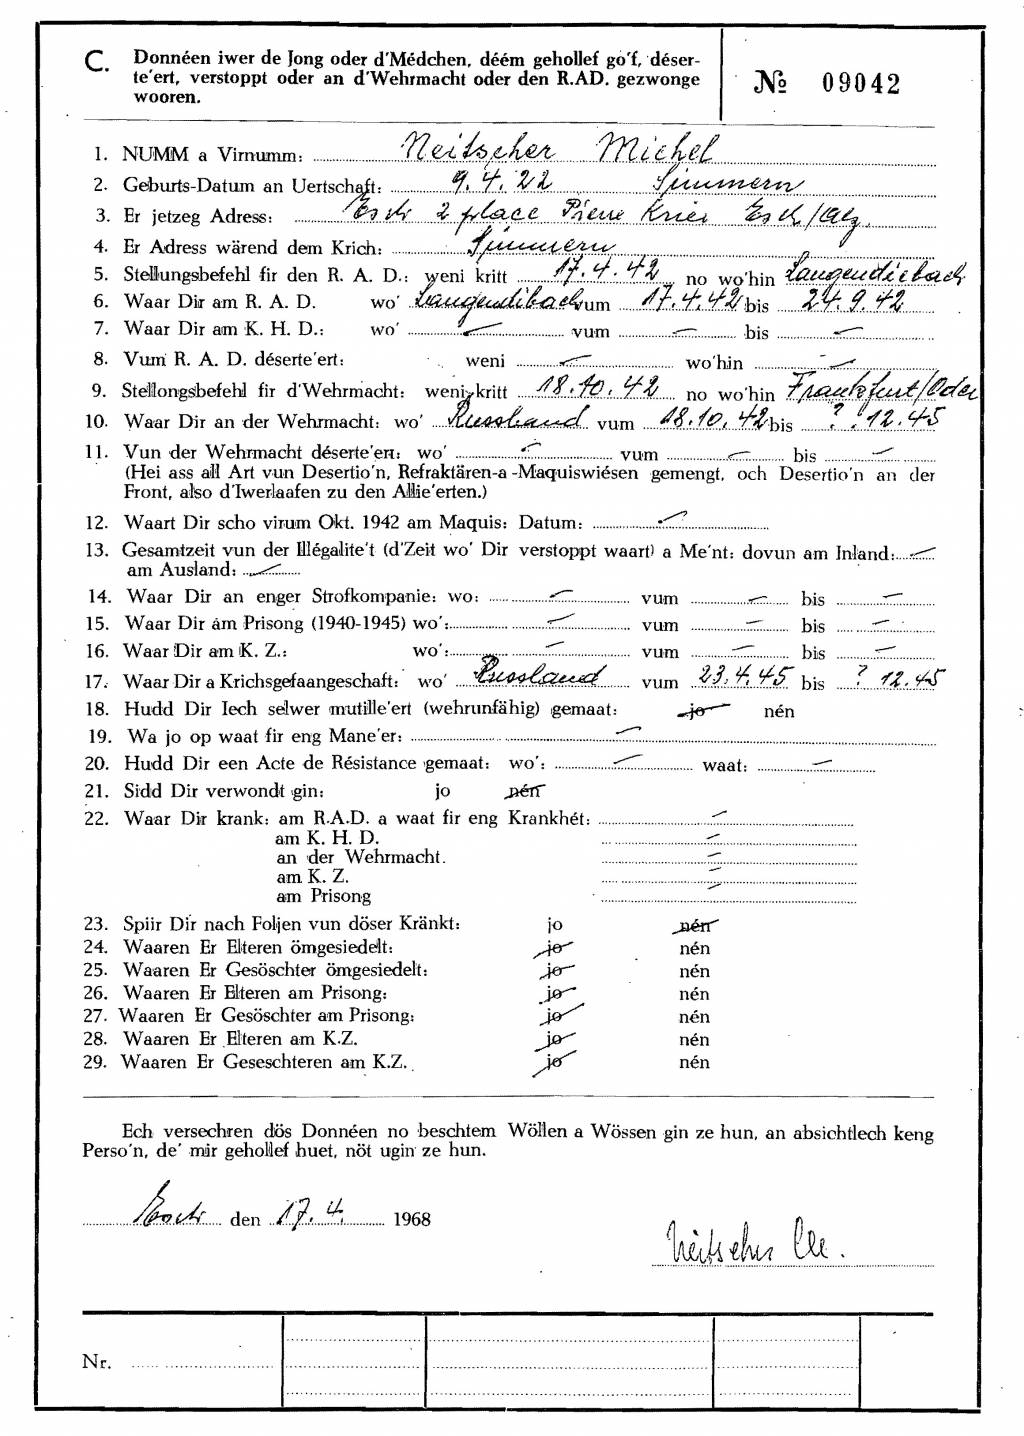 C. Donnéen iwer de Jong oder d'Médchen, déém gehollef go'f, déser-
te'ert, verstoppt oder an d'Wehrmacht oder den R.AD. gezwonge
wooren.
№ 09042
1. NUMM a Virnumm: Neitscher Michel
2. Geburts-Datum an Uertschaft: 9.4.22 Simmern
3. Er jetzeg Adress: Esch 2 place Pierre Krier Esch/Alz.
4. Er Adress wärend dem Krich: Simmern
5. Stellungsbefehl fir den R. A. D.: weni kritt 17.4.42 no wo'hin Langendiebach
6. Waar Dir am R. A. D. wo' Langendibach vum 17.4.42 bis 24.9.42
7. Waar Dir am K. H. D.: wo' — vum — bis —
8. Vum R. A. D. déserte'ert: weni — wo'hin —
9. Stellongsbefehl fir d'Wehrmacht: weni kritt 18.10.42 no wo'hin Frankfurt/Oder
10. Waar Dir an der Wehrmacht: wo' Russland vum 18.10.42 bis ? ? 12.45
11. Vun der Wehrmacht déserte'ert: wo' — vum — bis —
(Hei ass all Art vun Desertio'n, Refraktären-a-Maquiswiésen gemengt, och Desertio'n an der
Front, also d'Iwerlaafen zu den Allie'erten.)
12. Waart Dir scho virum Okt. 1942 am Maquis: Datum: —
13. Gesamtzeit vun der Illégalite't (d'Zeit wo' Dir verstoppt waart) a Me'nt: dovun am Inland: —
am Ausland: —
14. Waar Dir an enger Strofkompanie: wo: — vum — bis —
15. Waar Dir am Prisong (1940-1945) wo': — vum — bis —
16. Waar Dir am K. Z.: wo': — vum — bis —
17. Waar Dir a Krichsgefaangeschaft: wo' Russland vum 23.4.45 bis ? 12.45
18. Hudd Dir Iech selwer mutille'ert (wehrunfähig) gemaat: jo nén
19. Wa jo op waat fir eng Mane'er: —
20. Hudd Dir een Acte de Résistance gemaat: wo': — waat: —
21. Sidd Dir verwondt gin: jo nén
22. Waar Dir krank: am R.A.D. a waat fir eng Krankhét: —
am K. H. D. —
an der Wehrmacht. —
am K. Z. —
am Prisong —
23. Spiir Dir nach Foljen vun döser Kränkt: jo nén
24. Waaren Er Elteren ömgesiedelt: jo nén
25. Waaren Er Gesöschter ömgesiedelt: jo nén
26. Waaren Er Elteren am Prisong: jo nén
27. Waaren Er Gesöschter am Prisong: jo nén
28. Waaren Er Elteren am K.Z. jo nén
29. Waaren Er Geseschteren am K.Z. jo nén
Ech versechren dös Donnéen no beschtem Wöllen a Wössen gin ze hun, an absichtlech keng
Perso'n, de' mir gehollef huet, nöt ugin ze hun.
Esch den 17.4. 1968
Neitscher M.
Nr.